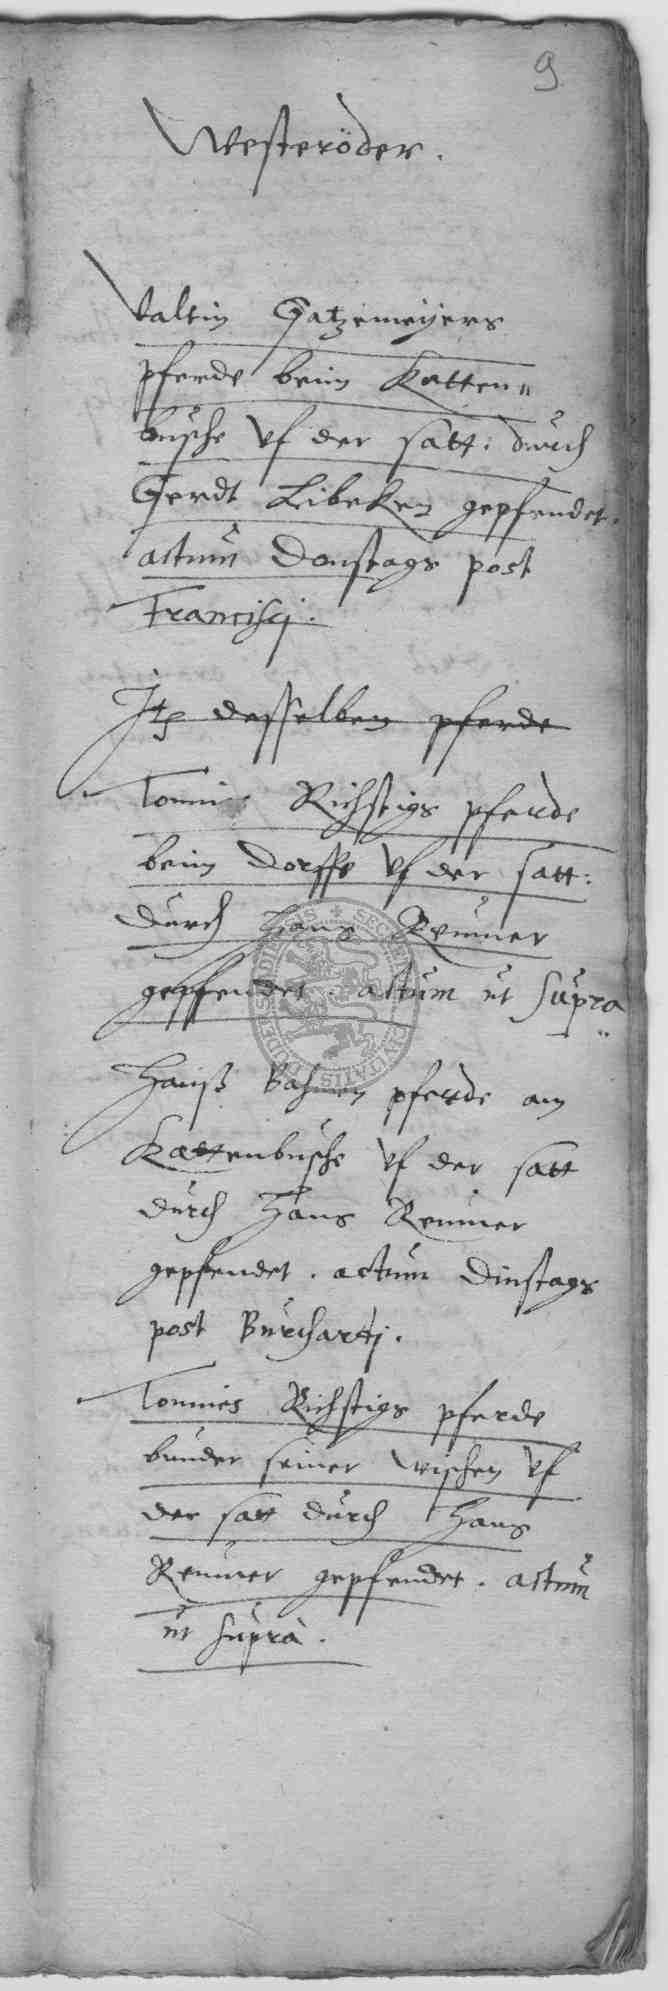 9
Westeröder.
Valtin Gatzemeÿers
pferde beim Katten-
busche vf der satt: durch
Gerdt Libeken gepfendet.
actum Donstags post
Francisci.
Jt desselben pferde
Tonnies Richstigs pferde
beim Dorffe vf der satt:
durch Hans Remmer
gepffendet. actum ut supra
Hanß Bahnen pferde am
Kattenbusche vf der satt
durch Hans Remmer
gepfendet. actum Dinstags
post Burchardj.
Tonnies Richstigs pferde
bunder seiner wischen vf
der satt durch Hans
Remmer gepfendet. actum
ut supra.
SECRET CIVITATIS DUDERSTADIENSIS